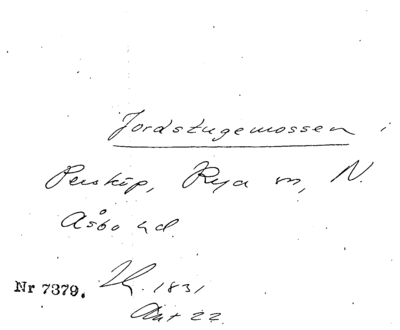 Jordstugemossen i
Persköp, Rya sn, N.
Åsbo hd.
Nr 7379. 1831
Akt 22